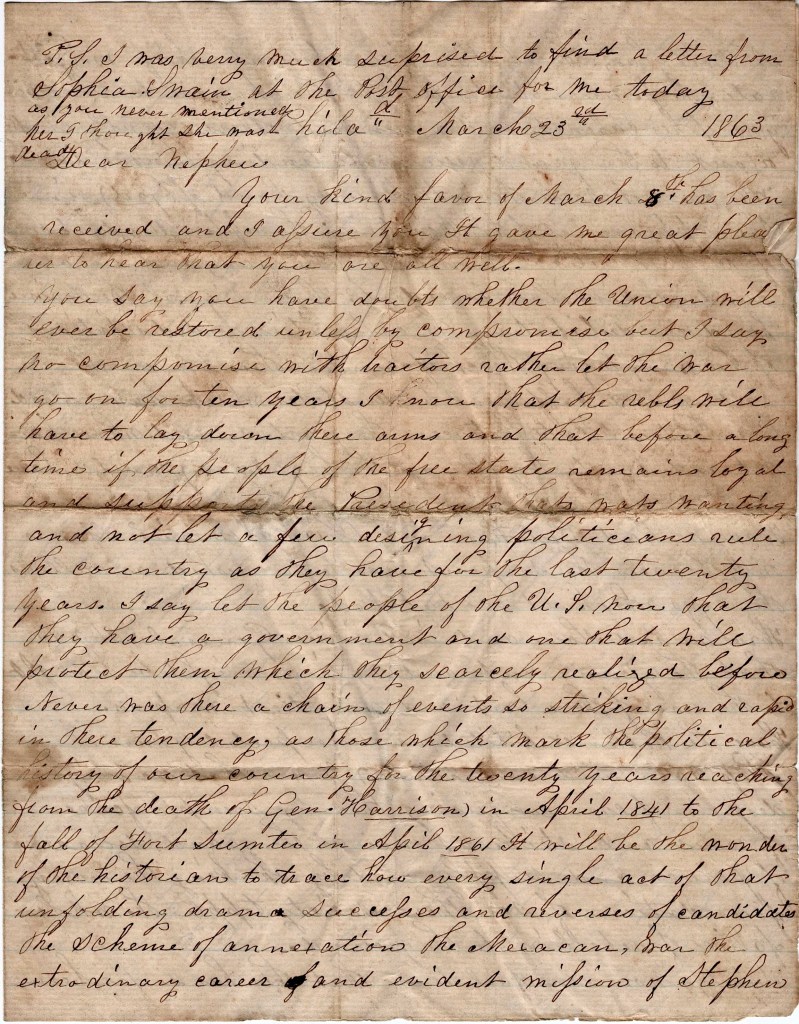 P.S. I was verry much suprised to find a letter from
Sophia Swain at the Post Office for me today
as you never mentioned
her I thought she was
dead
Phila d March 23rd 1863
Dear Nephew
Your kind favor of March 8th has been
received and I assure you It gave me great pleas
ure to hear that you are all well.
You say you have doubts whether the Union will
ever be restored unless by compromise but I say
no compromise with traitors rather let the war
go on for ten years I know that the rebls will
have to lay down there arms and that before a long
time if the people of the free states remains loyal
and supports the President thats wats wanting
and not let a few desigining politicians rule
the country as they have for the last twenty
years. I say let the people of the U.S. now that
they have a government and one that will
protect them which they scarcely realized before
Never was there a chain of events so striking and rapid
in there tendency, as those which mark the political
history of our country for the twenty years reaching
from the death of Gen. Harrison) in April 1841 to the
fall of Fort Sumter in April 1861 It will be the wonder
of the historian to trace how every single act of that
unfolding drama successes and reverses of candidates
the scheme of annexation the Mexacan, war the
extrodinary career and evident mission of Stephen